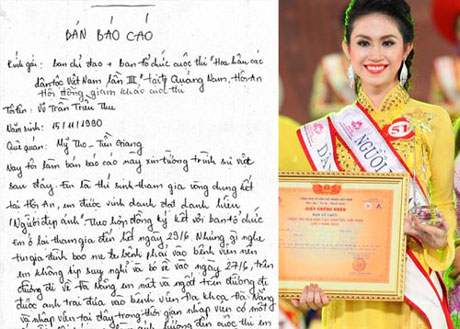 BẢN BÁO CÁO
Kính gửi: ban chỉ đạo + ban tổ chức cuộc thi "Hoa hậu các
dân tộc Việt Nam lần III" tại tp Quảng Nam, Hội An
Hội đồng giám khảo cuộc thi
Tôi tên: Võ Trần Triều Thu
Năm sinh: 15/11/1990
Quê quán: Mỹ Tho - Tiền Giang
Nay tôi làm bản báo cáo này xin tường trình sự việc
sau đây. Em là thí sinh tham gia vòng chung kết
tại Hội An, em được vinh danh đạt danh hiệu
"Người đẹp ảnh". Theo hợp đồng ký kết với ban tổ chức
em ở lại tham gia đến hết ngày 29/6. Nhưng vì nghe
tin gia đình báo mẹ bệnh phải vào bệnh viện nên
em không kịp suy nghĩ và bỏ về vào ngày 27/6, trên
đường đi về Đà Nẵng em mệt và ngất trên đường đi
được anh trai đưa vào bệnh viện Đa khoa Đà Nẵng
và nhập viện tại đây, trong thời gian nhập viện có một
hưởng đến cuộc thi em
NGƯỜI
DÂN
51
GIẤY CHỨNG NHẬN
BAN TỔ CHỨC